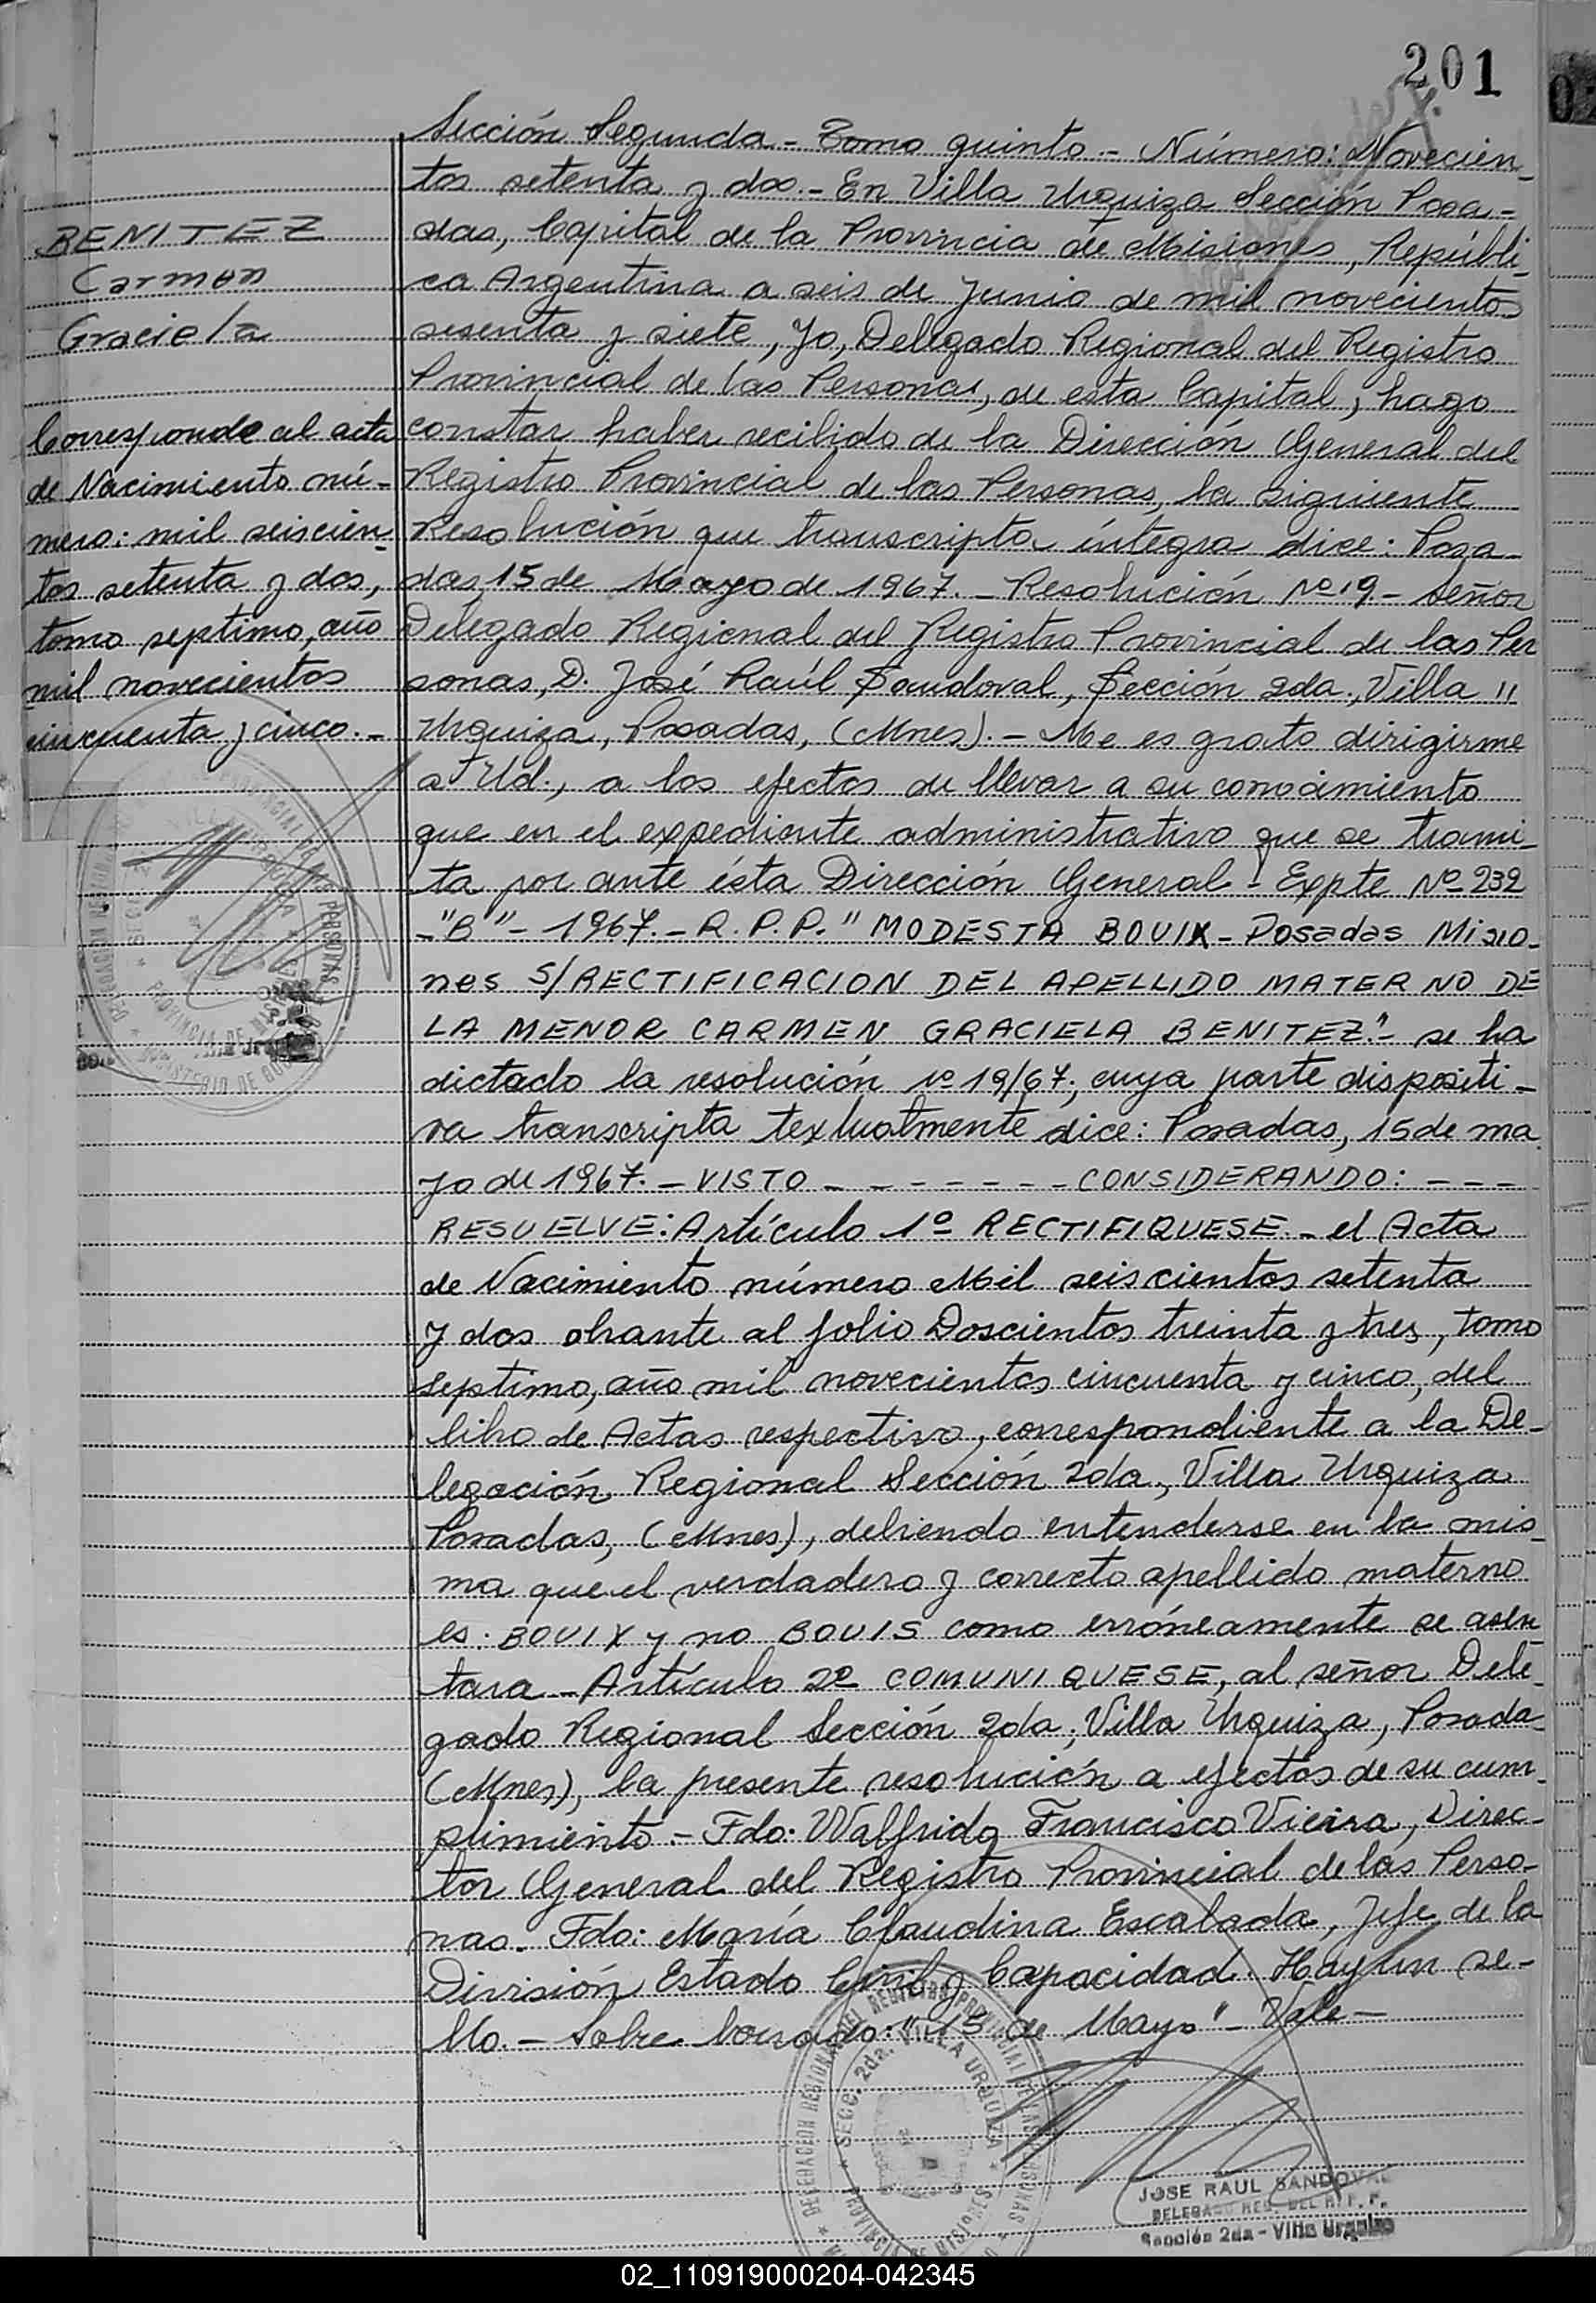 201
Sección Segunda - Tomo quinto - Número: Novecien-
tos setenta y dos.- En Villa Urquiza Sección Posa-
das, Capital de la Provincia de Misiones, Repúbli-
ca Argentina a seis de Junio de mil novecientos
sesenta y siete, Yo, Delegado Regional del Registro
Provincial de las Personas, de esta Capital, hago
constar haber recibido de la Dirección General del
Registro Provincial de las Personas, la siguiente
Resolución que transcripta íntegra dice: Posa-
das, 15 de Mayo de 1967.- Resolución Nº 19 - Señor
Delegado Regional del Registro Provincial de las Per
sonas, D. José Raúl Sandoval, Sección 2da., Villa "
Urquiza, Posadas, (Mnes).- Me es grato dirigirme
a Ud., a los efectos de llevar a su conocimiento
que en el expediente administrativo que se trami-
ta por ante ésta Dirección General - Expte Nº 232
-"B"- 1967.- R.P.P. "MODESTA BOUIX - Posadas Misio-
nes S/RECTIFICACION DEL APELLIDO MATERNO DE
LA MENOR CARMEN GRACIELA BENITEZ".- se ha
dictado la resolución Nº 19/67; cuya parte dispositi-
va transcripta textualmente dice: Posadas, 15 de ma
yo de 1967.- VISTO - - - - - - - CONSIDERANDO: - - -
RESUELVE: Artículo 1º RECTIFIQUESE.- el Acta
de Nacimiento número Mil seiscientos setenta
y dos obrante al folio Doscientos treinta y tres, tomo
septimo, año mil novecientos cincuenta y cinco, del
libro de Actas respectivo, correspondiente a la De-
legación Regional Sección 2da., Villa Urquiza
Posadas, (Mnes), debiendo entenderse en la mis-
ma que el verdadero y correcto apellido materno
es: BOUIX y no BOUIS como erróneamente se asen
tara.- Artículo 2º COMUNIQUESE, al señor Dele-
gado Regional Sección 2da; Villa Urquiza, Posadas
(Mnes), la presente resolución a efectos de su cum-
plimiento - Fdo: Walfrido Francisco Vieira, Direc-
tor General del Registro Provincial de las Perso-
nas. Fdo: María Claudina Escalada, Jefe de la
División Estado Civil y Capacidad. Hay un se-
llo.- Sobre borrado: "15 de Mayo" - Vale -
BENITEZ
Carmen
Graciela
Corresponde al acta
de Nacimiento nú-
mero: mil seiscien-
tos setenta y dos,
tomo septimo, año
mil novecientos
cincuenta y cinco.-
DELEGACION REGIONAL DEL REGISTRO PROVINCIAL DE LAS PERSONAS
SECC. 2da. VILLA URQUIZA
PROVINCIA DE MISIONES
JOSE RAUL SANDOVAL
DELEGADO REG. DEL R. P. P.
Sección 2da - Villa Urquiza
02_110919000204-042345